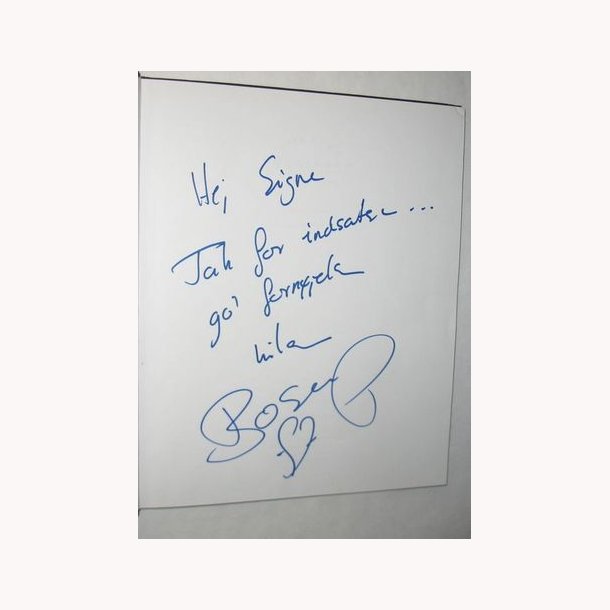 Hej Signe
Tak for indsatsen ...
go' fornøjelse
hilsen